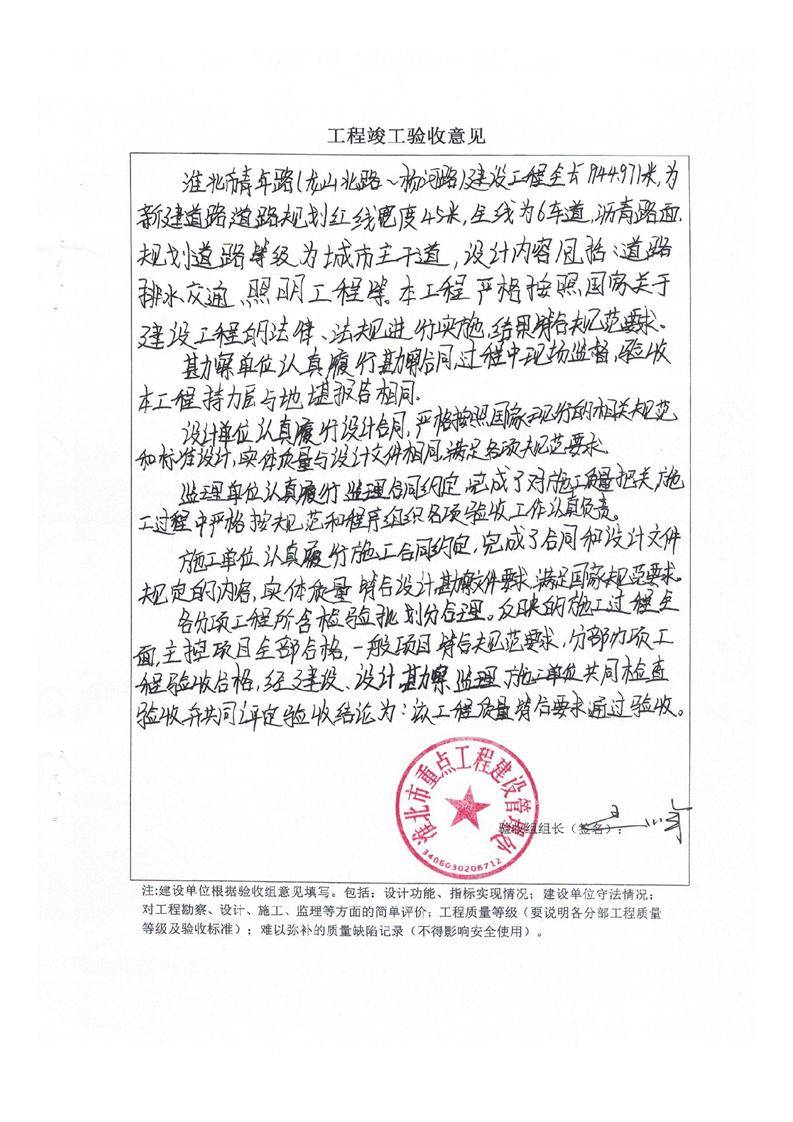 工程竣工验收意见
淮北市青年路(龙山北路~杨河路)建设工程全长1944.971米,为
新建道路,道路规划红线宽度45米,全线为6车道,沥青路面.
规划道路等级为城市主干道,设计内容包括:道路
排水交通、照明工程等.本工程严格按照国家关于
建设工程的法律、法规进行实施,结果符合规范要求.
勘察单位认真履行勘察合同,过程中现场监督,验收
本工程持力层与地堪报告相同.
设计单位认真履行设计合同,严格按照国家现行的相关规范
和标准设计,实体质量与设计文件相同,满足各项规范要求.
监理单位认真履行监理合同约定,完成了对施工质量把关,施
工过程中严格按规范和程序组织各项验收工作认真负责.
施工单位认真履行施工合同约定,完成了合同和设计文件
规定的内容,实体质量符合设计勘察文件要求,满足国家规范要求.
各分项工程所含检验批划分合理。反映的施工过程全
面,主控项目全部合格,一般项目符合规范要求,分部分项工
程验收合格,经建设、设计勘察监理、施工单位共同检查
验收并共同评定验收结论为:该工程质量符合要求通过验收。
淮北市重点工程建设管理处
3406030206712
验收组组长(签名):
注:建设单位根据验收组意见填写。包括:设计功能、指标实现情况;建设单位守法情况;
对工程勘察、设计、施工、监理等方面的简单评价;工程质量等级(要说明各分部工程质量
等级及验收标准);难以弥补的质量缺陷记录(不得影响安全使用)。